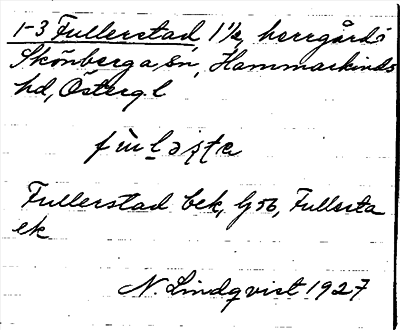 1-3 Fullerstad 1 1/2, herrgård i
Skönberga sn, Hammarkinds
hd, Österg. l
Fullerstad bek, G 56, Fullsta
ek
N. Lindqvist 1927